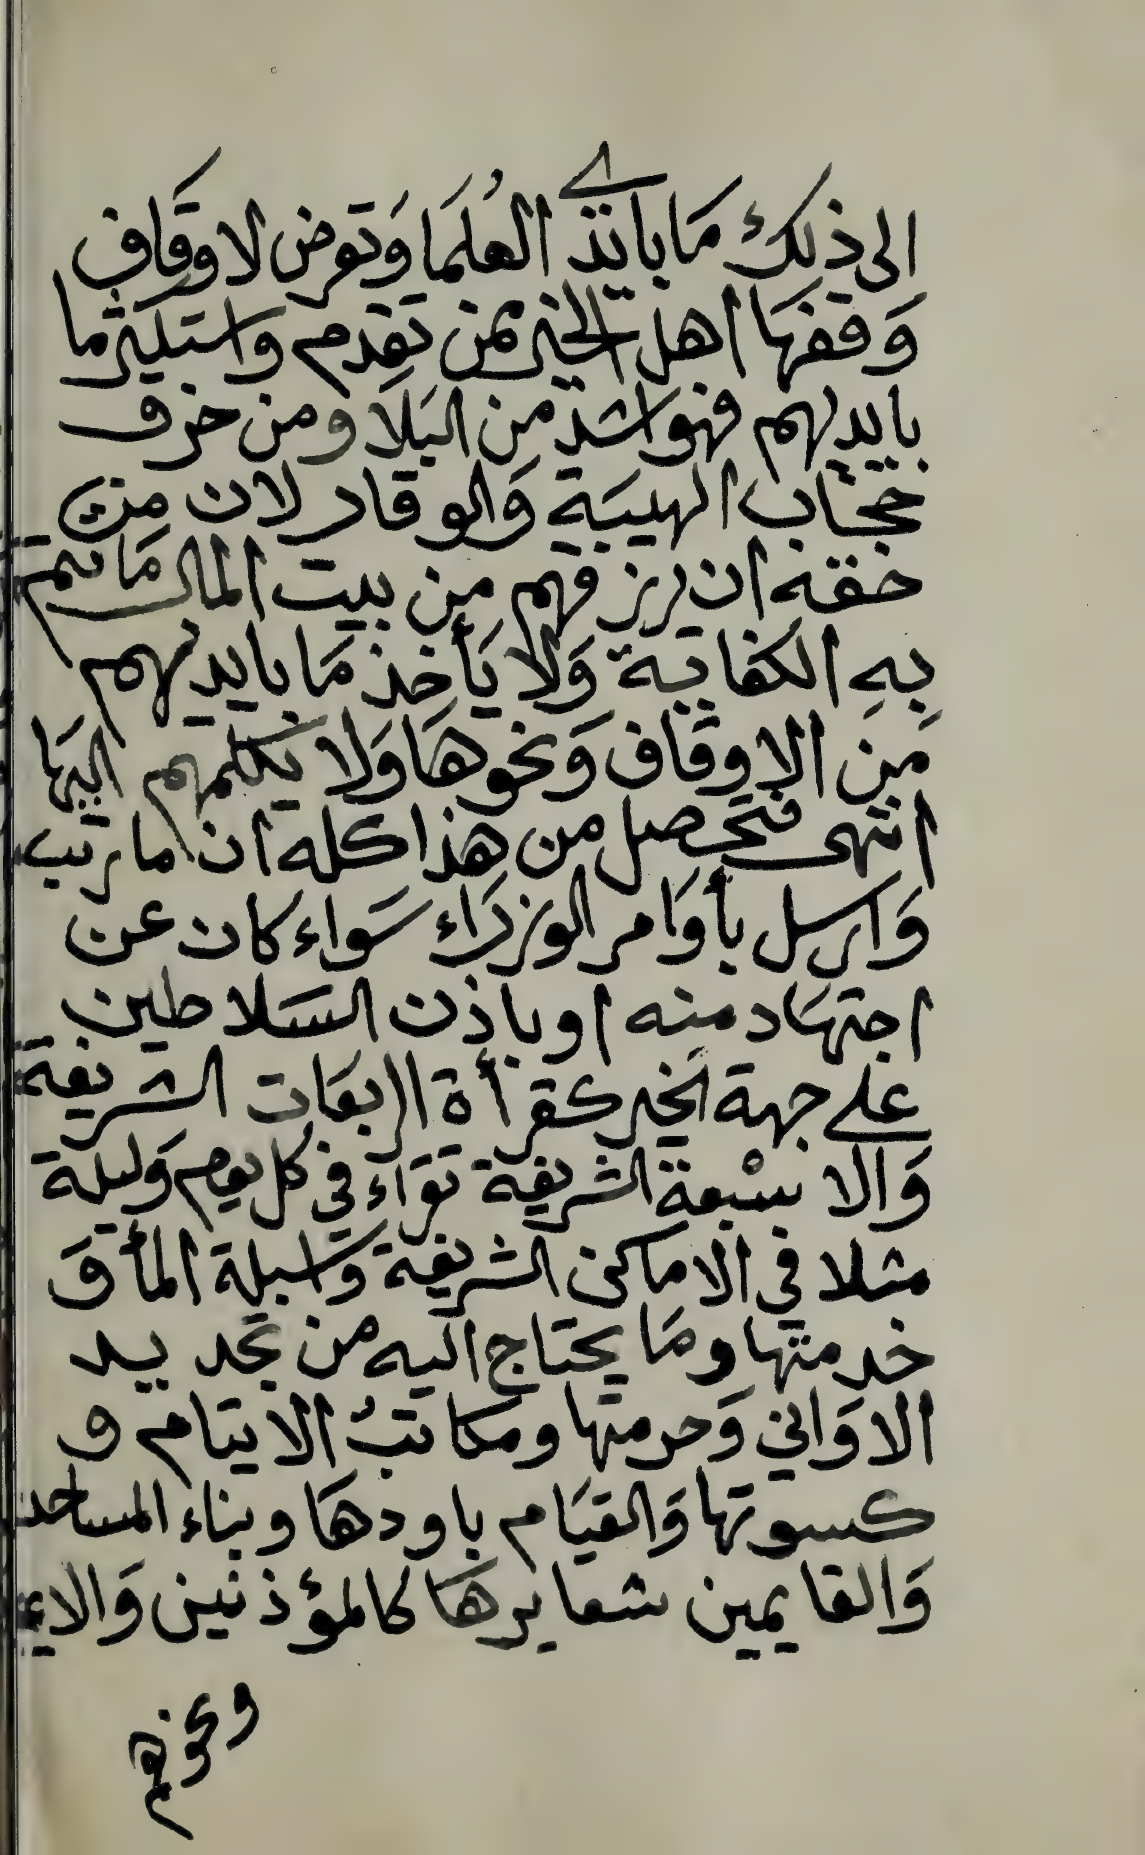 الى ذلك مَا بايدي العُلمَا وَتعرض لاوقَاف
وَقفهَا اهل الخير ممن تقدم واستكثر ما
بايديهم فهو اشد من البَلا ومن خرف
حجَاب الهيبَة وَالوقار لان من
حقه ان يرزقهم من بيت المال مَا تتم
بهِ الكفاية وَلا يَأخذ مَا بايديهم
من الاوقَاف وَنحوهَا وَلا يكلمهم اليهَا
انتهى فتحصل من هذا كله ان ما رتب
وَارسل بأوَامر الوزرَاء سَواء كان عن
اجتهَاد منه او باذن السَلاطين
على جهة الخير كقرأة الربعَات الشريفة
وَالا سْبعة الشريفة تقرَاء في كل يوم وَليلة
مثلا في الاماكن الشريفة وَاسبلة المأ وَ
خدمتها ومَا يحتاج اليه من تجديد
الاوَاني وَحرمتها ومكاتبُ الايتَام و
كسوتها وَالقيَام باودهَا وبناء المساجد
وَالقايمين بشعايرهَا كالمؤذنين وَالايمة
ونحوهم